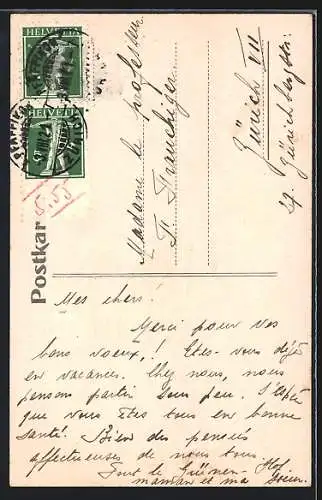 HELVETIA
HELVETIA
Postkar
Madame le professeur
Zürich VII
Zürichbergstr.
Mes chers!
Merci pour vos
bons voeux,! Etes-vous déjà
en vacances. Chez nous, nous
pensons partir sous peu. J'espère
que vous êtes tous en bonne
santé. Bien des pensées
affectueuses de nous tous.
maman et ma